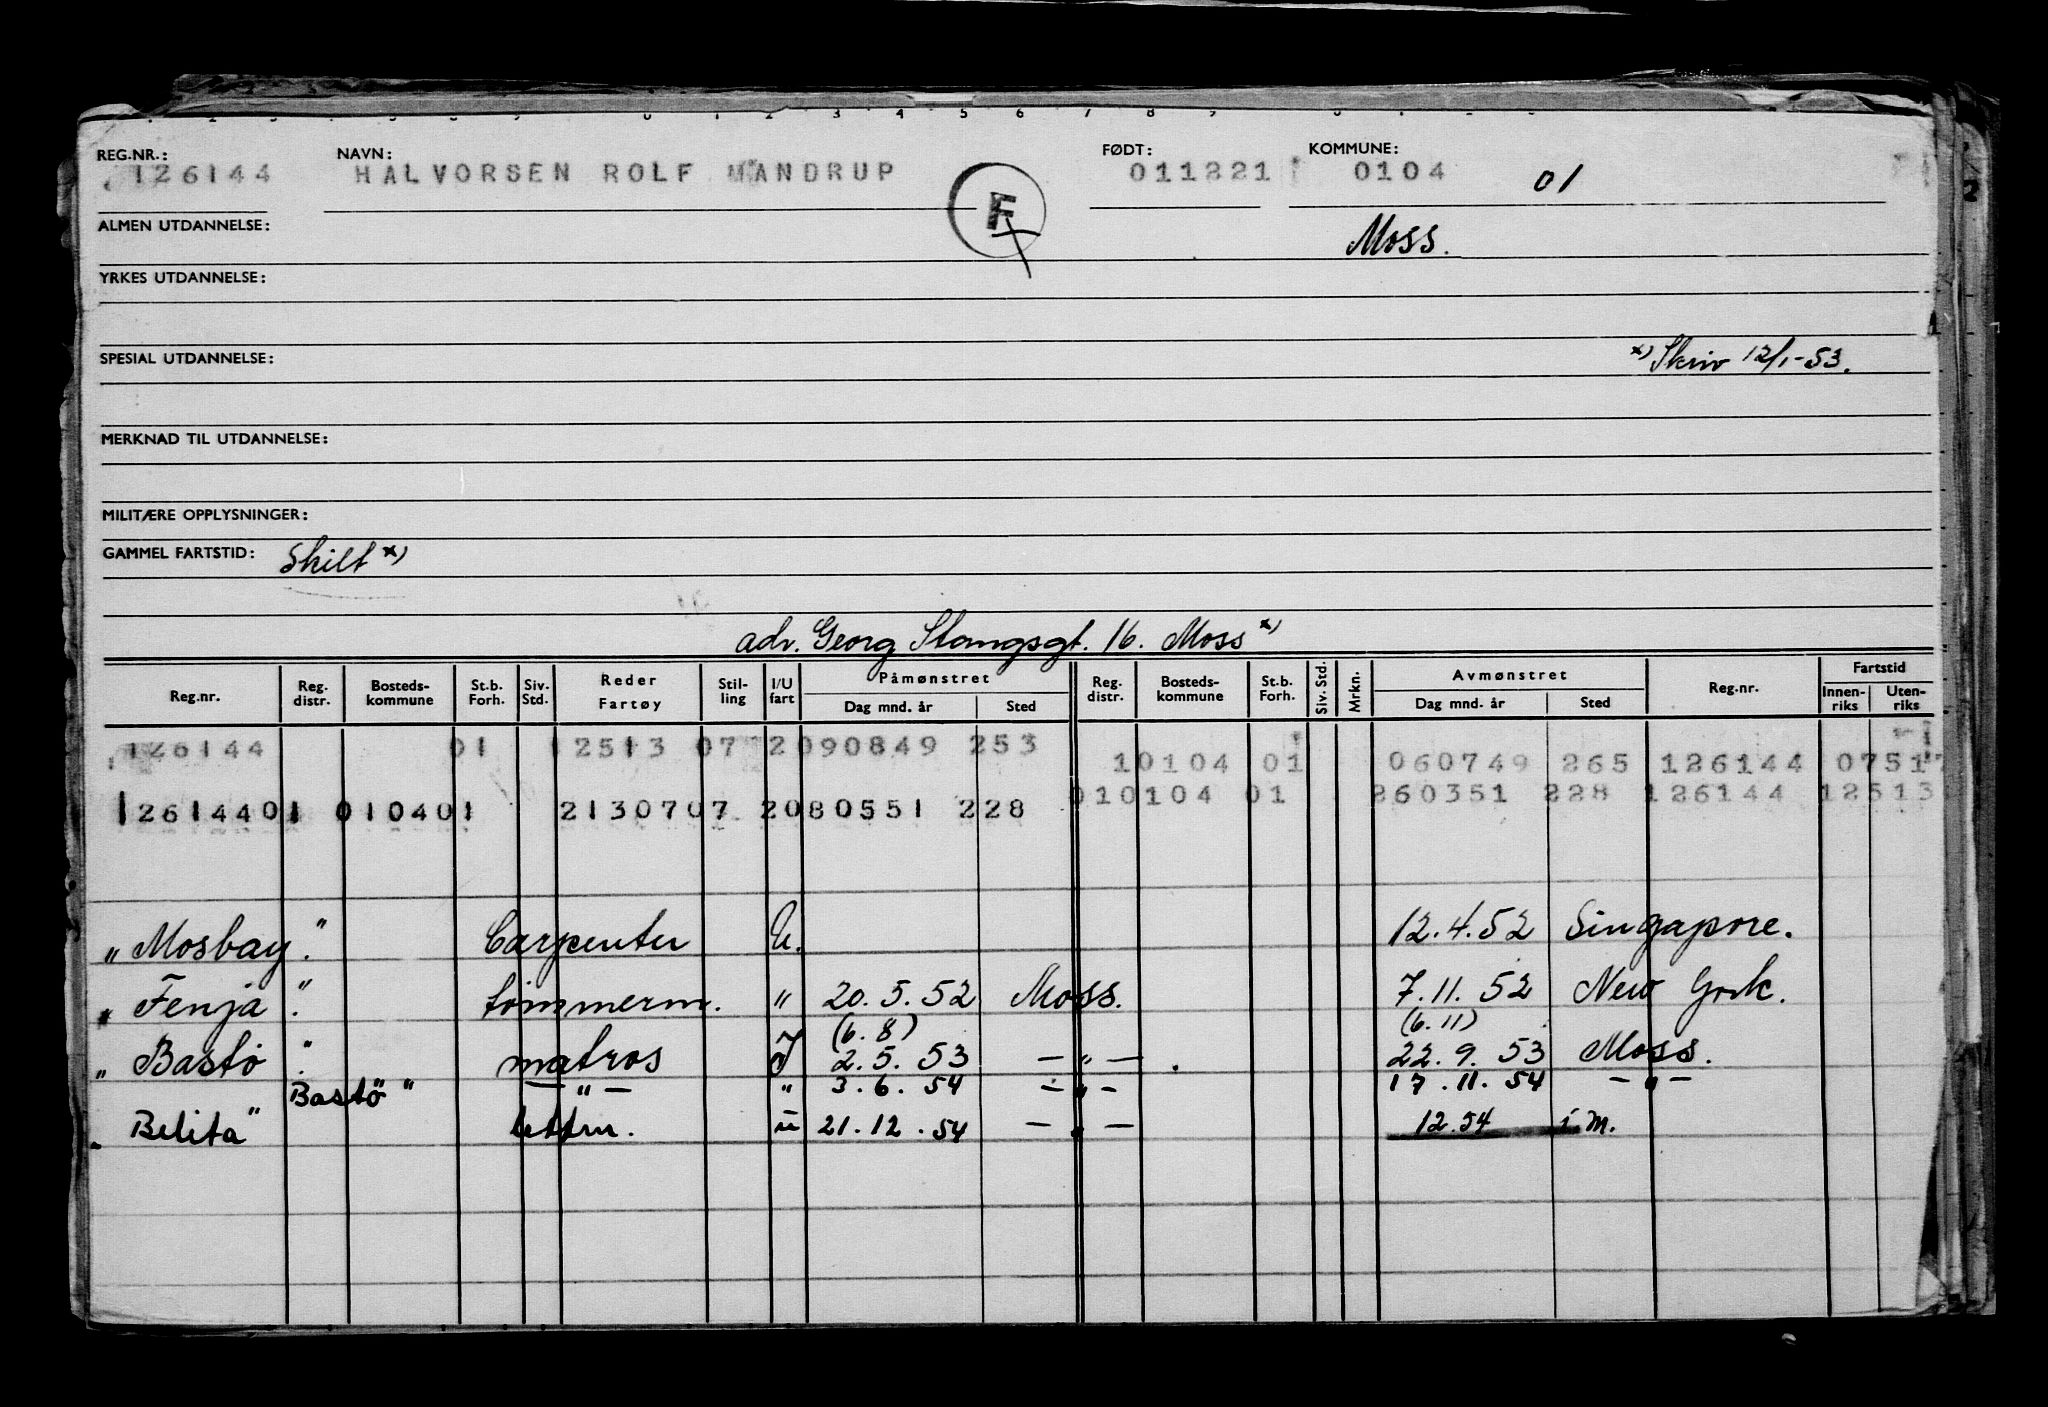 REG.NR.: NAVN: FØDT: KOMMUNE:
126144 HALVORSEN ROLF MANDRUP 011221 0104 01
F
ALMEN UTDANNELSE: Moss.
YRKES UTDANNELSE:
SPESIAL UTDANNELSE: x) Skriv 12/1-53.
MERKNAD TIL UTDANNELSE:
MILITÆRE OPPLYSNINGER:
GAMMEL FARTSTID: Skilt x)
adr. Georg Stangsgt. 16. Moss x)
Reg.nr. Reg. distr. Bosteds-kommune St.b. Forh. Siv. Std. Reder Fartøy Stil-ling I/U fart Påmønstret Dag mnd. år Sted Reg. distr. Bosteds-kommune St.b. Forh. Siv. Std. Mrkn. Avmønstret Dag mnd. år Sted Reg.nr. Fartstid Innen-riks Uten-riks
126144 01 12513 07 2090849 253
10104 01 060749 265 126144 07517
12614401 010401 2130707 2080551 228
010104 01 260351 228 126144 12513
"Mosbay". Carpenter U. 12.4.52 Singapore.
"Fenja". tömmerm. " 20.5.52 Moss. 7.11.52 New York.
(6.8) (6.11)
"Bastö". matros I 2.5.53 — " — . 22.9.53 Moss.
Bastö" — " — " 3.6.54 — " — 17.11.54 — " —
"Belita" lettm. u 21.12.54 — " — 12.54 i M.